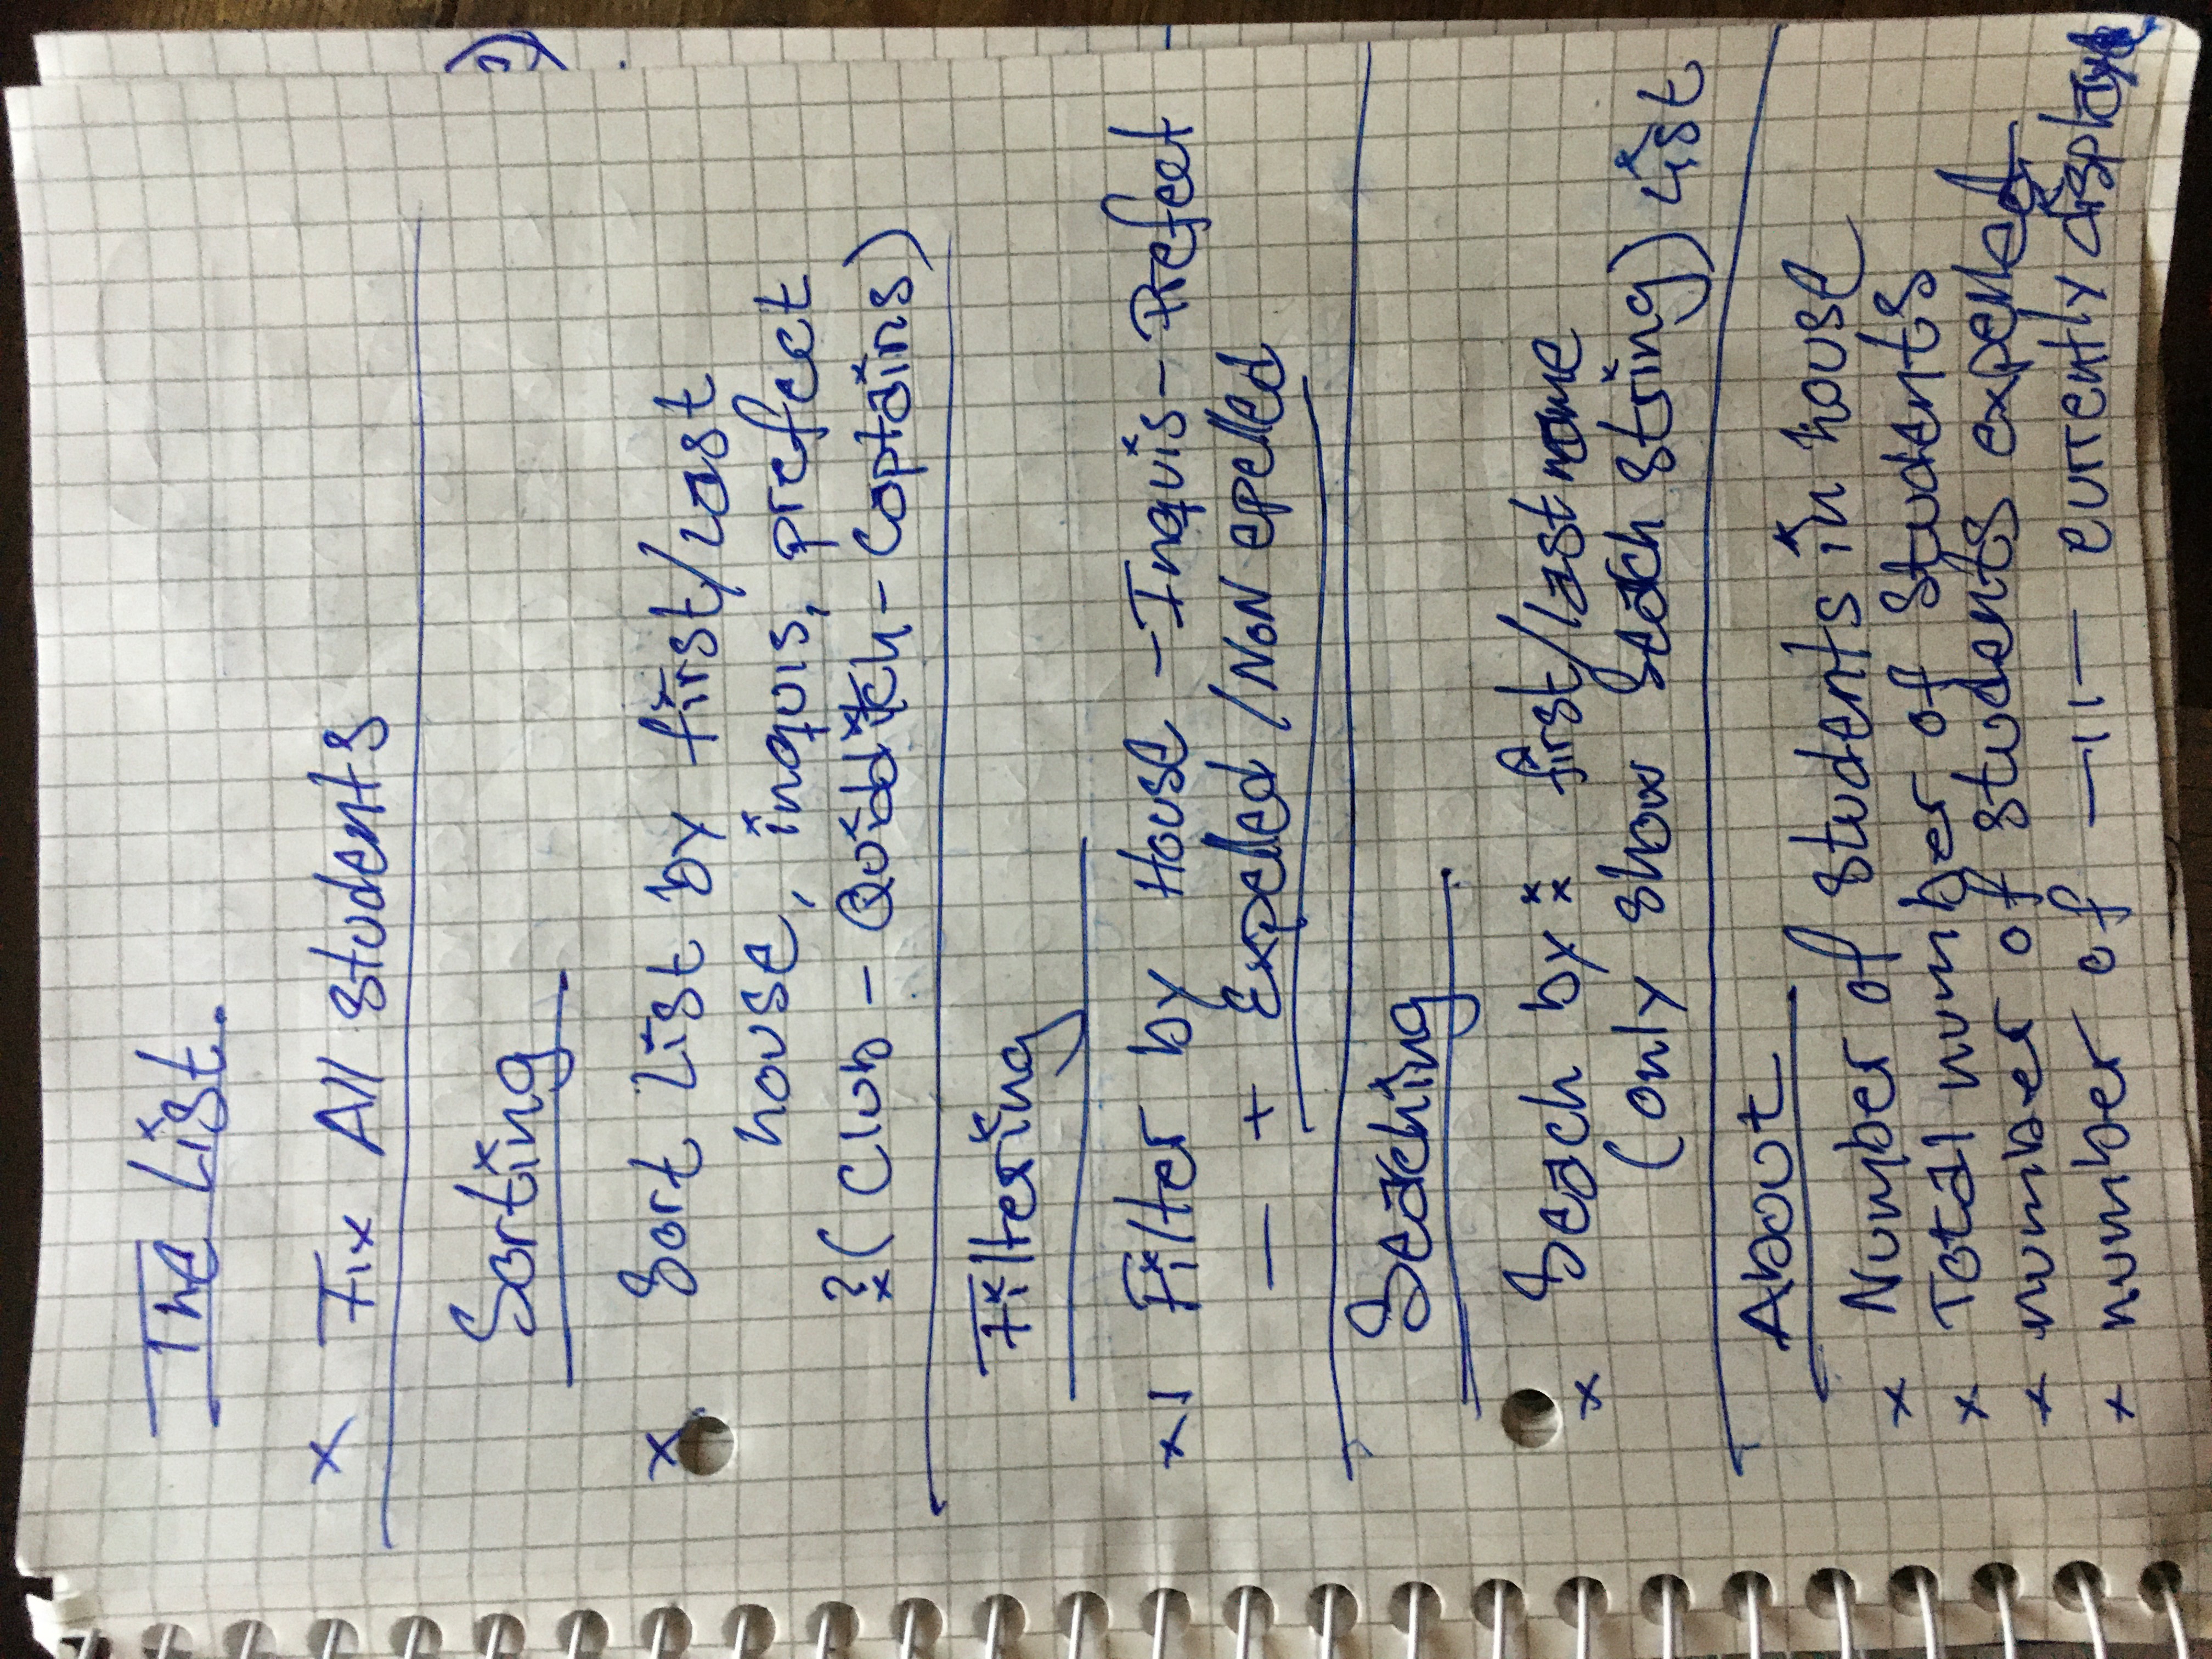 The List.
x Fix All students
Sorting
x Sort List by first/Last
house, inquis, prefect
? x (Club - Quidditch - Captains)
Filtering
x Filter by House - Inquis - Prefect
— + Expelled / NON epelled
Seaching
x Seach by : first/last name
(only show Seach string) List
About
x Number of students in house
x Total number of students
x number of students expelled
x number of —11— currently display